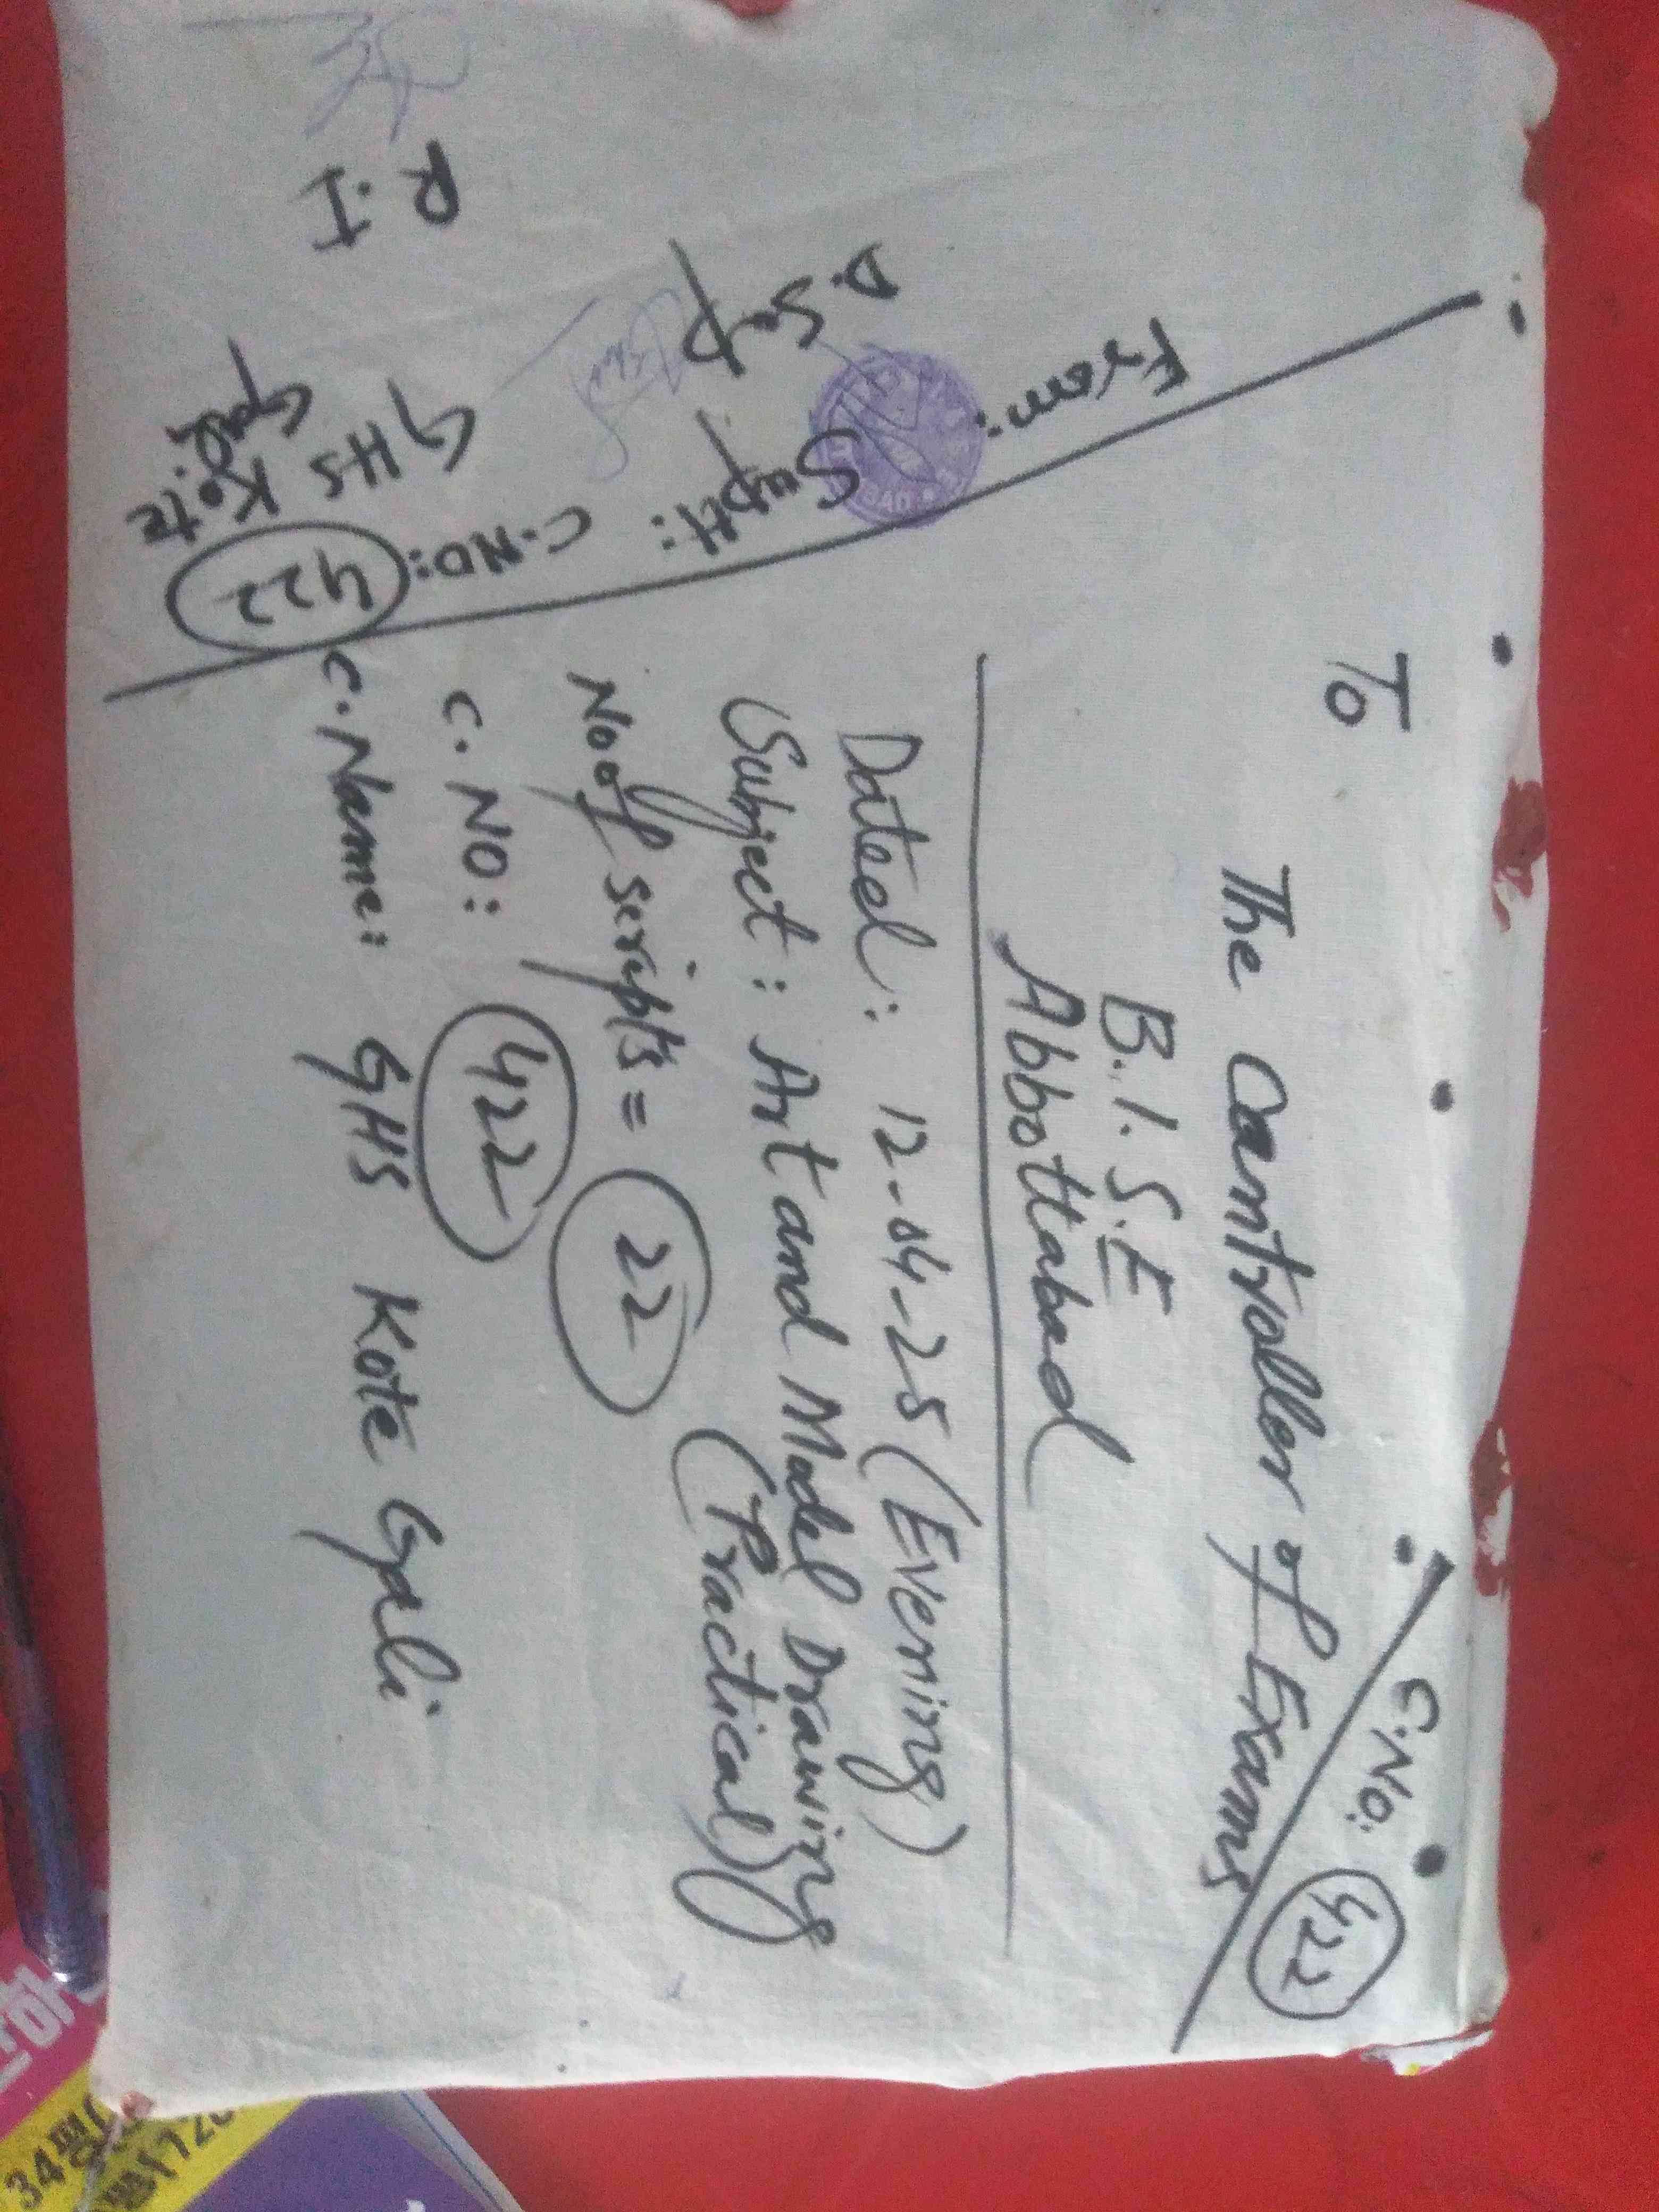 C.No: 422
To
The Cantroller of Exams
B.I.S.E
Abbottabad
Dated: 12-04-25 (Evening)
Subject: Art and Model Drawing
(Practical)
No of scripts = 22
C.NO: 422
C.Name: GHS Kote Gali
From:
Suptt:
C.NO: 422
D.Sup
GHS Kote
Gali
R.I
34평